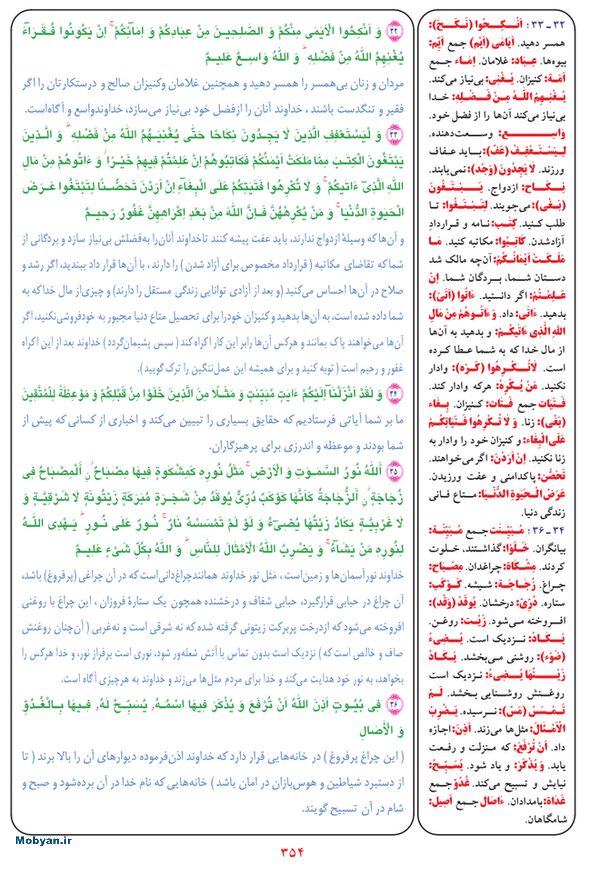 ۳۲ وَ أَنکِحُوا الْأَیَٰمَیٰ مِنکُمْ وَ الصَّٰلِحِینَ مِنْ عِبَادِکُمْ وَ إِمَآئِکُمْ ۚ إِنْ یَکُونُوا فُقَرَآءَ
یُغْنِهِمُ اللَّهُ مِنْ فَضْلِهِ ۗ وَ اللَّهُ وَاسِعٌ عَلِیمٌ
مردان و زنان بی‌همسر را همسر دهید و همچنین غلامان وکنیزان صالح و درستکارتان را اگر
فقیر و تنگدست باشند ، خداوند آنان را ازفضل خود بی‌نیاز می‌سازد، خداوندواسع و آگاه‌است.
۳۳ وَ لْیَسْتَعْفِفِ الَّذِینَ لَا یَجِدُونَ نِکَاحًا حَتَّیٰ یُغْنِیَهُمُ اللَّهُ مِنْ فَضْلِهِ ۗ وَ الَّذِینَ
یَبْتَغُونَ الْکِتَٰبَ مِمَّا مَلَکَتْ أَیْمَٰنُکُمْ فَکَاتِبُوهُمْ إِنْ عَلِمْتُمْ فِیهِمْ خَیْرًا ۖ وَ ءَاتُوهُمْ مِنْ مَالِ
اللَّهِ الَّذِیٓ ءَاتَٰکُمْ ۚ وَ لَا تُکْرِهُوا فَتَیَٰتِکُمْ عَلَی الْبِغَآءِ إِنْ أَرَدْنَ تَحَصُّنًا لِتَبْتَغُوا عَرَضَ
الْحَیَوٰةِ الدُّنْیَا ۚ وَ مَنْ یُکْرِهْهُنَّ فَإِنَّ اللَّهَ مِنْ بَعْدِ إِکْرَاهِهِنَّ غَفُورٌ رَحِیمٌ
و آن‌ها که وسیلهٔ ازدواج ندارند، باید عفت پیشه کنند تاخداوند آنان‌را به‌فضلش بی‌نیاز سازد و بردگانی از
شما که تقاضای مکاتبه ( قرارداد مخصوص برای آزاد شدن ) را دارند ، با آن‌ها قرار داد ببندید، اگر رشد و
صلاح در آن‌ها احساس می‌کنید (و بعد از آزادی توانایی زندگی مستقل را دارند) و چیزی‌از مال خدا که به
شما داده شده است، به آن‌ها بدهید و کنیزان خودرا برای تحصیل متاع دنیا مجبور به خودفروشی‌نکنید، اگر
آن‌ها می‌خواهند پاک بمانند و هرکس آن‌ها رابر این کار اکراه کند ( سپس پشیمان‌گردد ) خداوند بعد از این اکراه
غفور و رحیم است ( توبه کنید و برای همیشه این عمل‌ننگین را ترک گویید).
۳۴ وَ لَقَدْ أَنْزَلْنَآ إِلَیْکُمْ ءَایَٰتٍ مُبَیِّنَٰتٍ وَ مَثَلًا مِنَ الَّذِینَ خَلَوْا مِنْ قَبْلِکُمْ وَ مَوْعِظَةً لِلْمُتَّقِینَ
ما بر شما آیاتی فرستادیم که حقایق بسیاری را تبیین می‌کند و اخباری از کسانی که پیش از
شما بودند و موعظه و اندرزی برای پرهیزگاران.
۳۵ اَللَّهُ نُورُ السَّمَٰوَٰتِ وَ الْأَرْضِ ۚ مَثَلُ نُورِهِ کَمِشْکَوٰةٍ فِیهَا مِصْبَاحٌ ۖ أَلْمِصْبَاحُ فِی
زُجَاجَةٍ ۖ أَلزُّجَاجَةُ کَأَنَّهَا کَوْکَبٌ دُرِّیٌّ یُوقَدُ مِنْ شَجَرَةٍ مُبَٰرَکَةٍ زَیْتُونَةٍ لَا شَرْقِیَّةٍ وَ
لَا غَرْبِیَّةٍ یَکَادُ زَیْتُهَا یُضِیٓءُ وَ لَوْ لَمْ تَمْسَسْهُ نَارٌ ۚ نُورٌ عَلَیٰ نُورٍ ۗ یَهْدِی اللَّهُ
لِنُورِهِ مَنْ یَشَآءُ ۚ وَ یَضْرِبُ اللَّهُ الْأَمْثَالَ لِلنَّاسِ ۗ وَ اللَّهُ بِکُلِّ شَیْءٍ عَلِیمٌ
خداوند نورآسمان‌ها و زمین‌است ، مثل نور خداوند همانندچراغ‌دانی‌است که در آن چراغی (پرفروغ) باشد،
آن چراغ در حبابی قرارگیرد، حبابی شفاف و درخشنده همچون یک ستارهٔ فروزان ، این چراغ با روغنی
افروخته می‌شود که ازدرخت پربرکت زیتونی گرفته شده که نه شرقی است و نه‌غربی ( آن‌چنان روغنش
صاف و خالص است که ) نزدیک است بدون تماس با آتش شعله‌ور شود، نوری است برفراز نور، و خدا هرکس را
بخواهد، به نور خود هدایت می‌کند و خدا برای مردم مثل‌ها می‌زند و خداوند به هرچیزی آگاه است.
۳۶ فِی بُیُوتٍ أَذِنَ اللَّهُ أَنْ تُرْفَعَ وَ یُذْکَرَ فِیهَا اسْمُهُ, یُسَبِّحُ لَهُ, فِیهَا بِالْغُدُوِّ
وَ الْأَصَالِ
( این چراغ پرفروغ ) در خانه‌هایی قرار دارد که خداوند اذن‌فرموده دیوارهای آن را بالا برند ( تا
از دستبرد شیاطین و هوس‌بازان در امان باشد ) خانه‌هایی که نام خدا در آن برده‌شود و صبح و
شام در آن تسبیح گویند.
۳۲ ـ ۳۳ : أَنْکِحُوا (نَکَحَ):
همسر دهید. أَیَامَیٰ (أَیِّم) جمع أَیِّم:
بیوه‌ها. عِبَاد: غلامان. إِمَاء جمع
أَمَة: کنیزان. یُغْنِی: بی‌نیاز می‌کند.
یُغْنِهِمُ اللَّهُ مِنْ فَضْلِهِ: خدا
بی‌نیاز می‌کند آن‌ها را از فضل خود.
وَاسِع: وسعت‌دهنده.
لِیَسْتَعْفِفْ (عَفَّ): باید عفاف
ورزند. لَا یَجِدُونَ (وَجَدَ): نمی‌یابند.
نِکَاح: ازدواج. یَبْتَغُونَ
(بَغَی): می‌جویند. لِتَبْتَغُوا: تا
طلب کنید. کِتَٰب: نامه و قرارداد
آزادشدن. کَاتِبُوا: مکاتبه کنید. مَا
مَلَکَتْ أَیْمَانُکُمْ: آن‌چه مالک شد
دستان شما، بردگان شما. إِنْ
عَلِمْتُمْ: اگر دانستید. ءَاتُوا (أَتَیٰ):
بدهید. ءَاتَی: داد. وَ ءَاتُوهُمْ مِنْ مَالِ
اللَّهِ الَّذِی ءَاتَیٰکُمْ: و بدهید به آن‌ها
از مال خدا که به شما عطا کرده
است. لَاتُکْرِهُوا (کَرِهَ): وادار
نکنید. مَنْ یُکْرِهْ: هرکه وادار کند.
فَتَیَات جمع فَتَات: کنیزان. بِغَاء
(بَغَی): زنا. وَ لَا تُکْرِهُوا فَتَیَاتِکُمْ
عَلَی الْبِغَاءِ: و کنیزان خود را وادار به
زنا نکنید. إِنْ أَرَدْنَ: اگر می‌خواهند.
تَحَصُّن: پاکدامنی و عفت ورزیدن.
عَرَضَ الْحَیَوٰةِ الدُّنْیَا: متاع فانی
زندگی دنیا.
۳۴ ـ ۳۶ : مُبَیِّنَٰت جمع مُبَیِّنَة:
بیانگران. خَلَوْا: گذاشتند، خلوت
کردند. مِشْکَاة: چراغدان. مِصْبَاح:
چراغ. زُجَاجَة: شیشه. کَوْکَب:
ستاره. دُرِّیّ: درخشان. یُوقَدُ (وَقَدَ):
افروخته می‌شود. زَیْت: روغن.
یَکَادُ: نزدیک است. یُضِیءُ
(ضَوْء): روشنی می‌بخشد. یَکَادُ
زَیْتُهَا یُضِیءُ: نزدیک است
روغنش روشنایی بخشد. لَمْ
تَمْسَسْ (مَسَّ): نرسیده. یَضْرِبُ
الْأَمْثَالَ: مثل‌ها می‌زند. أَذِنَ: اجازه
داد. أَنْ تُرْفَعَ: که منزلت و رفعت
یابد. وَ یُذْکَرَ: و یاد شود. یُسَبِّحُ:
نیایش و تسبیح می‌کند. غُدُوّ جمع
غَدَاة: بامدادان. ءَاصَال جمع أَصِیل:
شامگاهان.
۳۵۴
Mobyan.ir